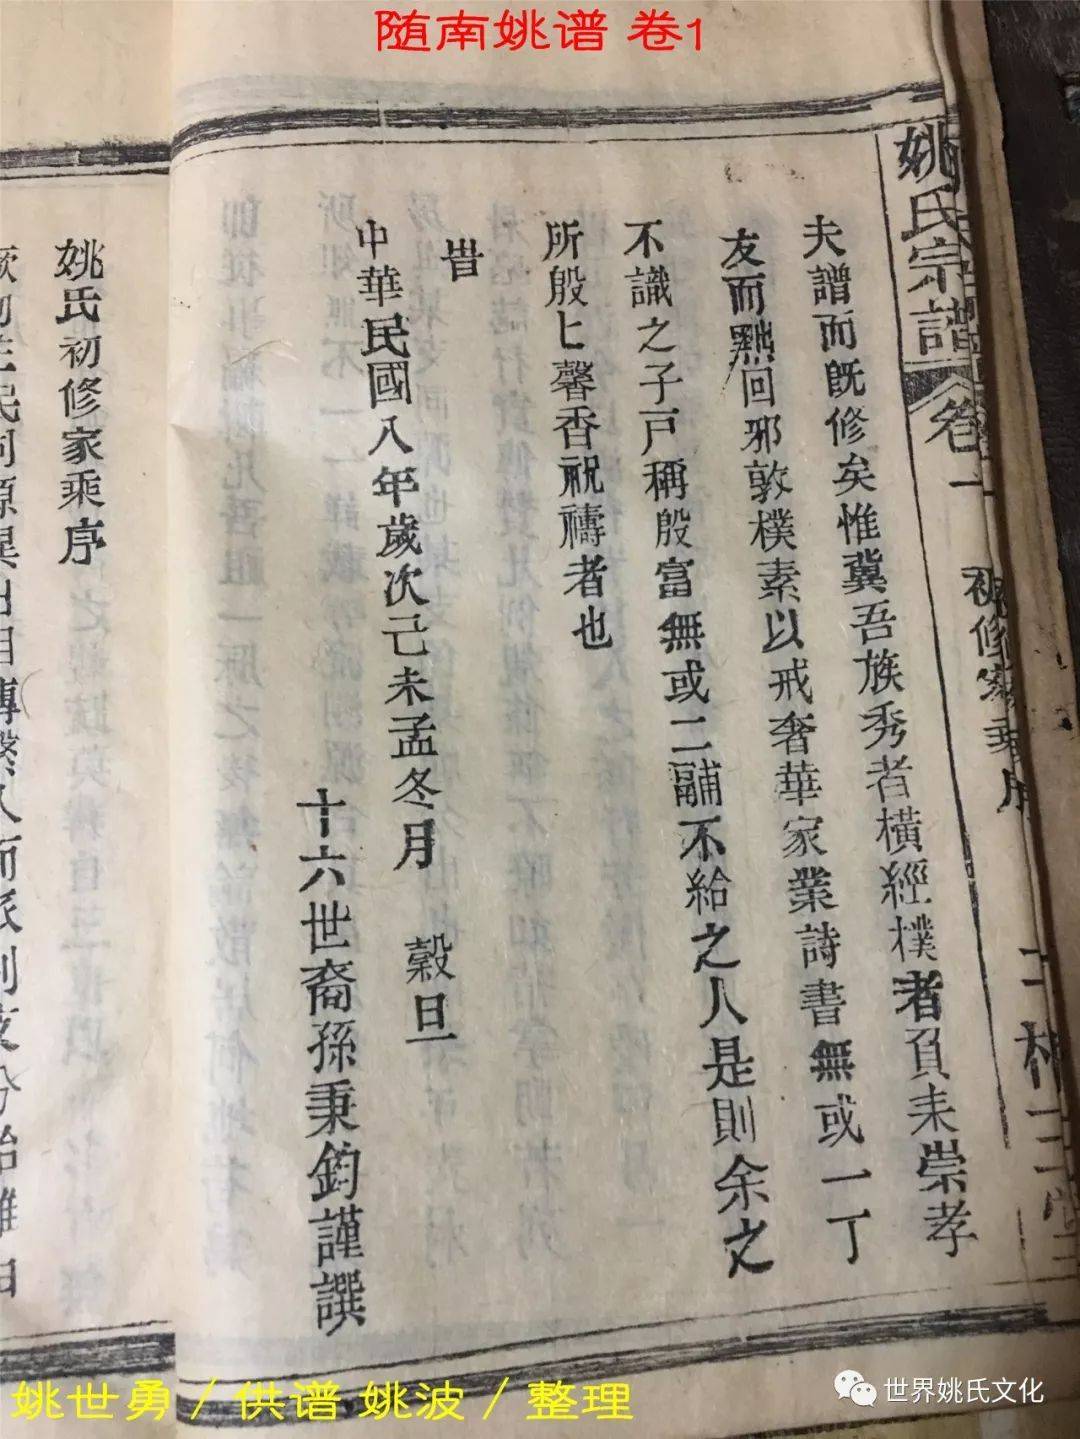 随南姚谱 卷1
姚氏宗譜
卷一
初修家乘序
夫譜而既修矣惟冀吾族秀者橫經樸者負耒崇孝
友而黜回邪敦樸素以戒奢華家業詩書無或一丁
不識之子戶稱殷富無或二鬴不給之人是則余之
所殷匕馨香祝禱者也
旹
中華民國八年歲次己未孟冬月 穀旦
十六世裔孫秉鈞謹譔
姚氏初修家乘序
姚世勇／供谱 姚波／整理
世界姚氏文化